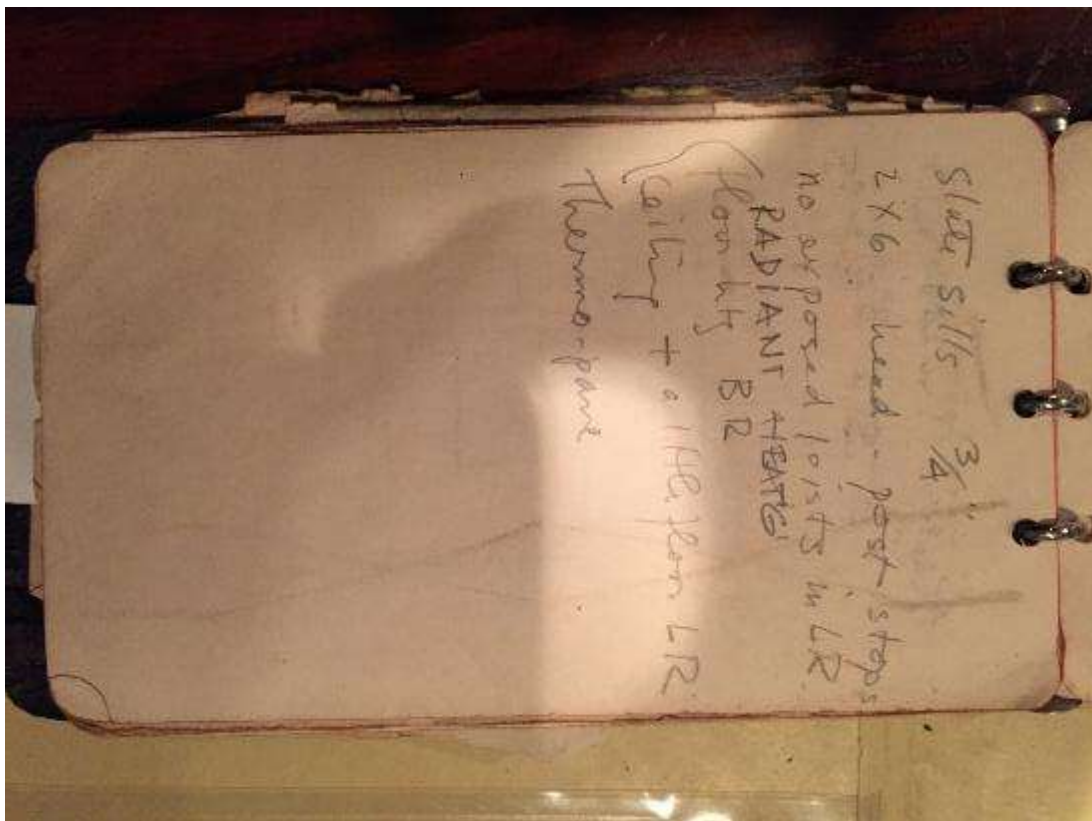 Slate Sills 3/4"
2 X 6 head - post stops
no exposed joists in LR.
RADIANT HEAT'G
(floor htg BR
(Ceiling + a little floor LR.
Thermo-pane